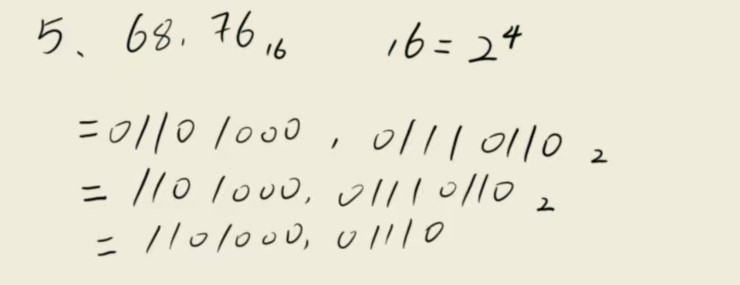 5、 68.76₁₆ 16=2⁴
=0110 1000 . 0111 0110 ₂
= 110 1000. 0111 0110 ₂
= 1101000. 01110